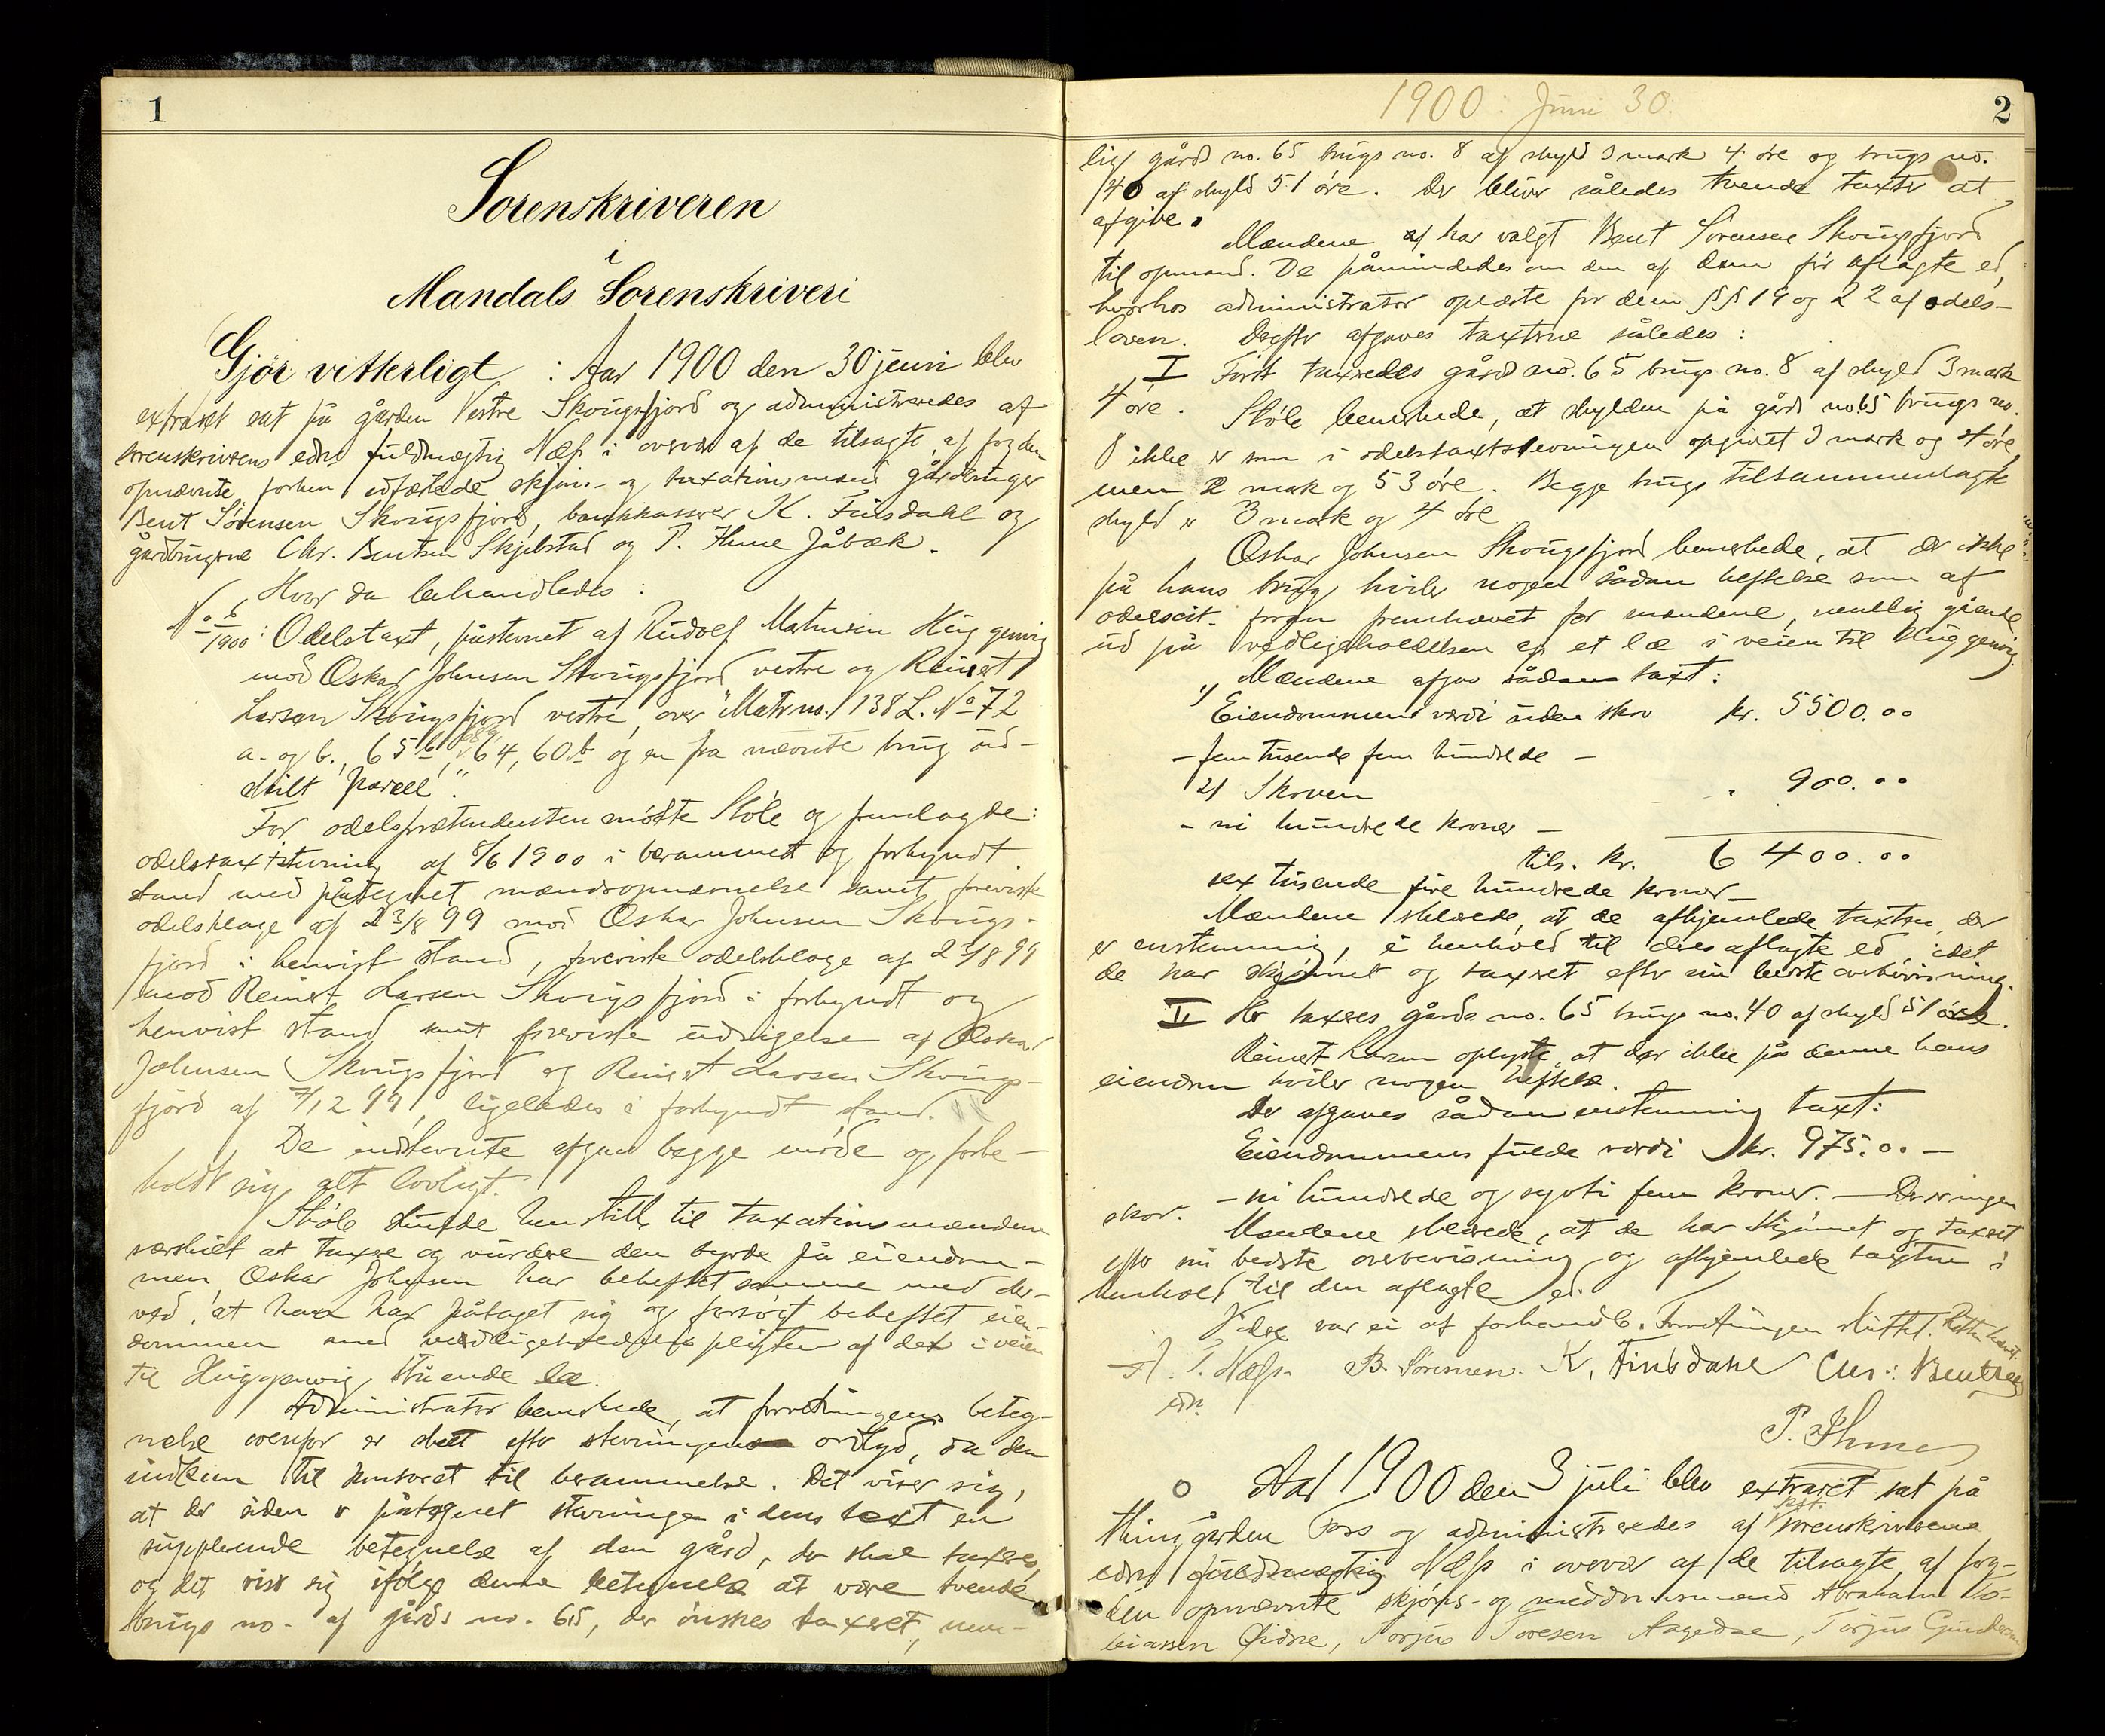 1
Sorenskriveren
i
Mandals Sorenskriveri
Gjör vitterligt : Aar 1900 den 30 juni blev
extraret sat på gården Vestre Skougsfjord og administreredes af
sorenskriverens edsv. fuldmægtig Næss i overvær af de tilsagte, af fogden
opnævnte, forhen edfæstede skjöns- og taxationsmænd gårdbruger
Bent Sörensen Skougsfjord, bankkasserer K. Finsdahl og
gårdbrugerne Chr. Bentsen Skjebstad og P. Ihme Jåbæk.
Hvor da behandledes :
No 6/1900: Odelstaxt, påstevnet af Rudolf Mathisen Huggenvig
mod Oskar Johnsen Skougsfjord vestre og Reinert
Larsen Skougsfjord vestre over "Matr.no. 138 L. No 72
a. og b., 65 b, 64, 60 b og en fra nævnte brug ud-
skilt parcel".
For odelsprætendenten mödte Stöle og fremlagde:
odelstaxtstevning af 8/6 1900 i berammet og forkyndt
stand med påtegnet mændsopnævnelse samt foreviste
odelsklage af 23/8 99 mod Oskar Johnsen Skougs-
fjord i henvist stand, foreviste odelsklage af 23/8 99
mod Reinert Larsen Skougsfjord i forkyndt og
henvist stand samt foreviste udsigelse af Oskar
Johnsen Skougsfjord og Reinert Larsen Skougs-
fjord af 7/12 99, ligeledes i forkyndt stand.
De indstevnte afgav begge möde og forbe-
holdt sig alt lovligt.
Stöle henstille til taxationsmændene
særskilt at taxere og vurdere den byrde på eiendom-
men Oskar Johnsen har beheftet samme med der-
ved, at han har påtaget sig og forsögt beheftet eien-
dommen med vedligeholdelsespligten af det i veien
til Huggenvig stående læ.
Administrator bemerkede, at forretningens beteg-
nelse ovenfor er skeet efter stevningens ordlyd, da den
indkom til kontoret til berammelse. Det viser sig,
at der siden er påtegnet stevningen i dens text en
supplerende betegnelse af den gård, der skal taxeres,
og det viser sig ifölge denne betegnelse at være tvende
brugs no. af gårds no. 65, der önskes taxeret, nem-
1900: Juni 30.
2
lig gårds no. 65 brugs no. 8 af skyld 3 mark 4 öre og brugs no.
40 af skyld 51 öre. Der bliver således tvende taxter at
afgive.
Mændene har valgt Bent Sörensen Skougsfjord
til opmand. De påmindedes om den af dem för aflagte ed,
hvorhos administrator oplæste for dem §§ 19 og 22 af odels-
loven. Derefter afgaves taxterne således:
I Först taxeredes gårds no. 65 brugs no. 8 af skyld 3 mark
4 öre. Stöle bemerkede, at skylden på gårds no 65 brugs no.
8 ikke er som i odelstaxtstevningen opgivet 3 mark og 4 öre,
men 2 mark og 53 öre. Begge brugs tilsammenlagte
skyld er 3 mark og 4 öre
Oskar Johnsen Skougsfjord bemerkede, at der ikke
på hans brug hviler nogen sådan heftelse som af
odelscit. foran fremhævet for mændene, nemlig gående
ud på vedligeholdelsen af et læ i veien til Huggenvig.
Mændene afgav sådan taxt:
1) Eiendommens værdi uden skov kr. 5500.00
- fem tusende fem hundrede -
2) Skoven " 900.00
- ni hundrede kroner -
tils. kr. 6 400.00
sex tusende fire hundrede kroner -
Mændene erklærede, at de afhjemlede taxten, der
er enstemmig, i henhold til deres aflagte ed idet
de har skjönnet og taxeret efter sin bedste overbevisning.
II Her taxeres gårds no. 65 brugs no. 40 af skyld 51 öre.
Reinert Larsen oplyste, at der ikke på denne hans
eiendom hviler nogen heftelse.
Der afgaves sådan enstemmig taxt:
Eiendommens fulde værdi kr. 975.00 -
- ni hundrede og sytti fem kroner. - Der er ingen
skov.
Mændene erklærede, at de har skjönnet og taxeret
efter sin bedste overbevisning og afhjemlede taxten i
henhold til den aflagte ed.
Videre var ei at forhandle. Forretningen sluttet. Retten hævet.
A. T. Næss. B. Sörensen. K. Finsdahl Chr: Bentsen
edsv.
P. Ihme
Aar 1900 den 3 juli blev extraret sat på
thinggården Foss og administreredes af kst. sorenskriverens
edsv. fuldmægtig Næss i overvær af de tilsagte, af fog-
den opnævnte skjöns- og meddomsmænd Abraham To-
biassen Öidne, Torjus Toresen Aagedae, Torjus Gundersen